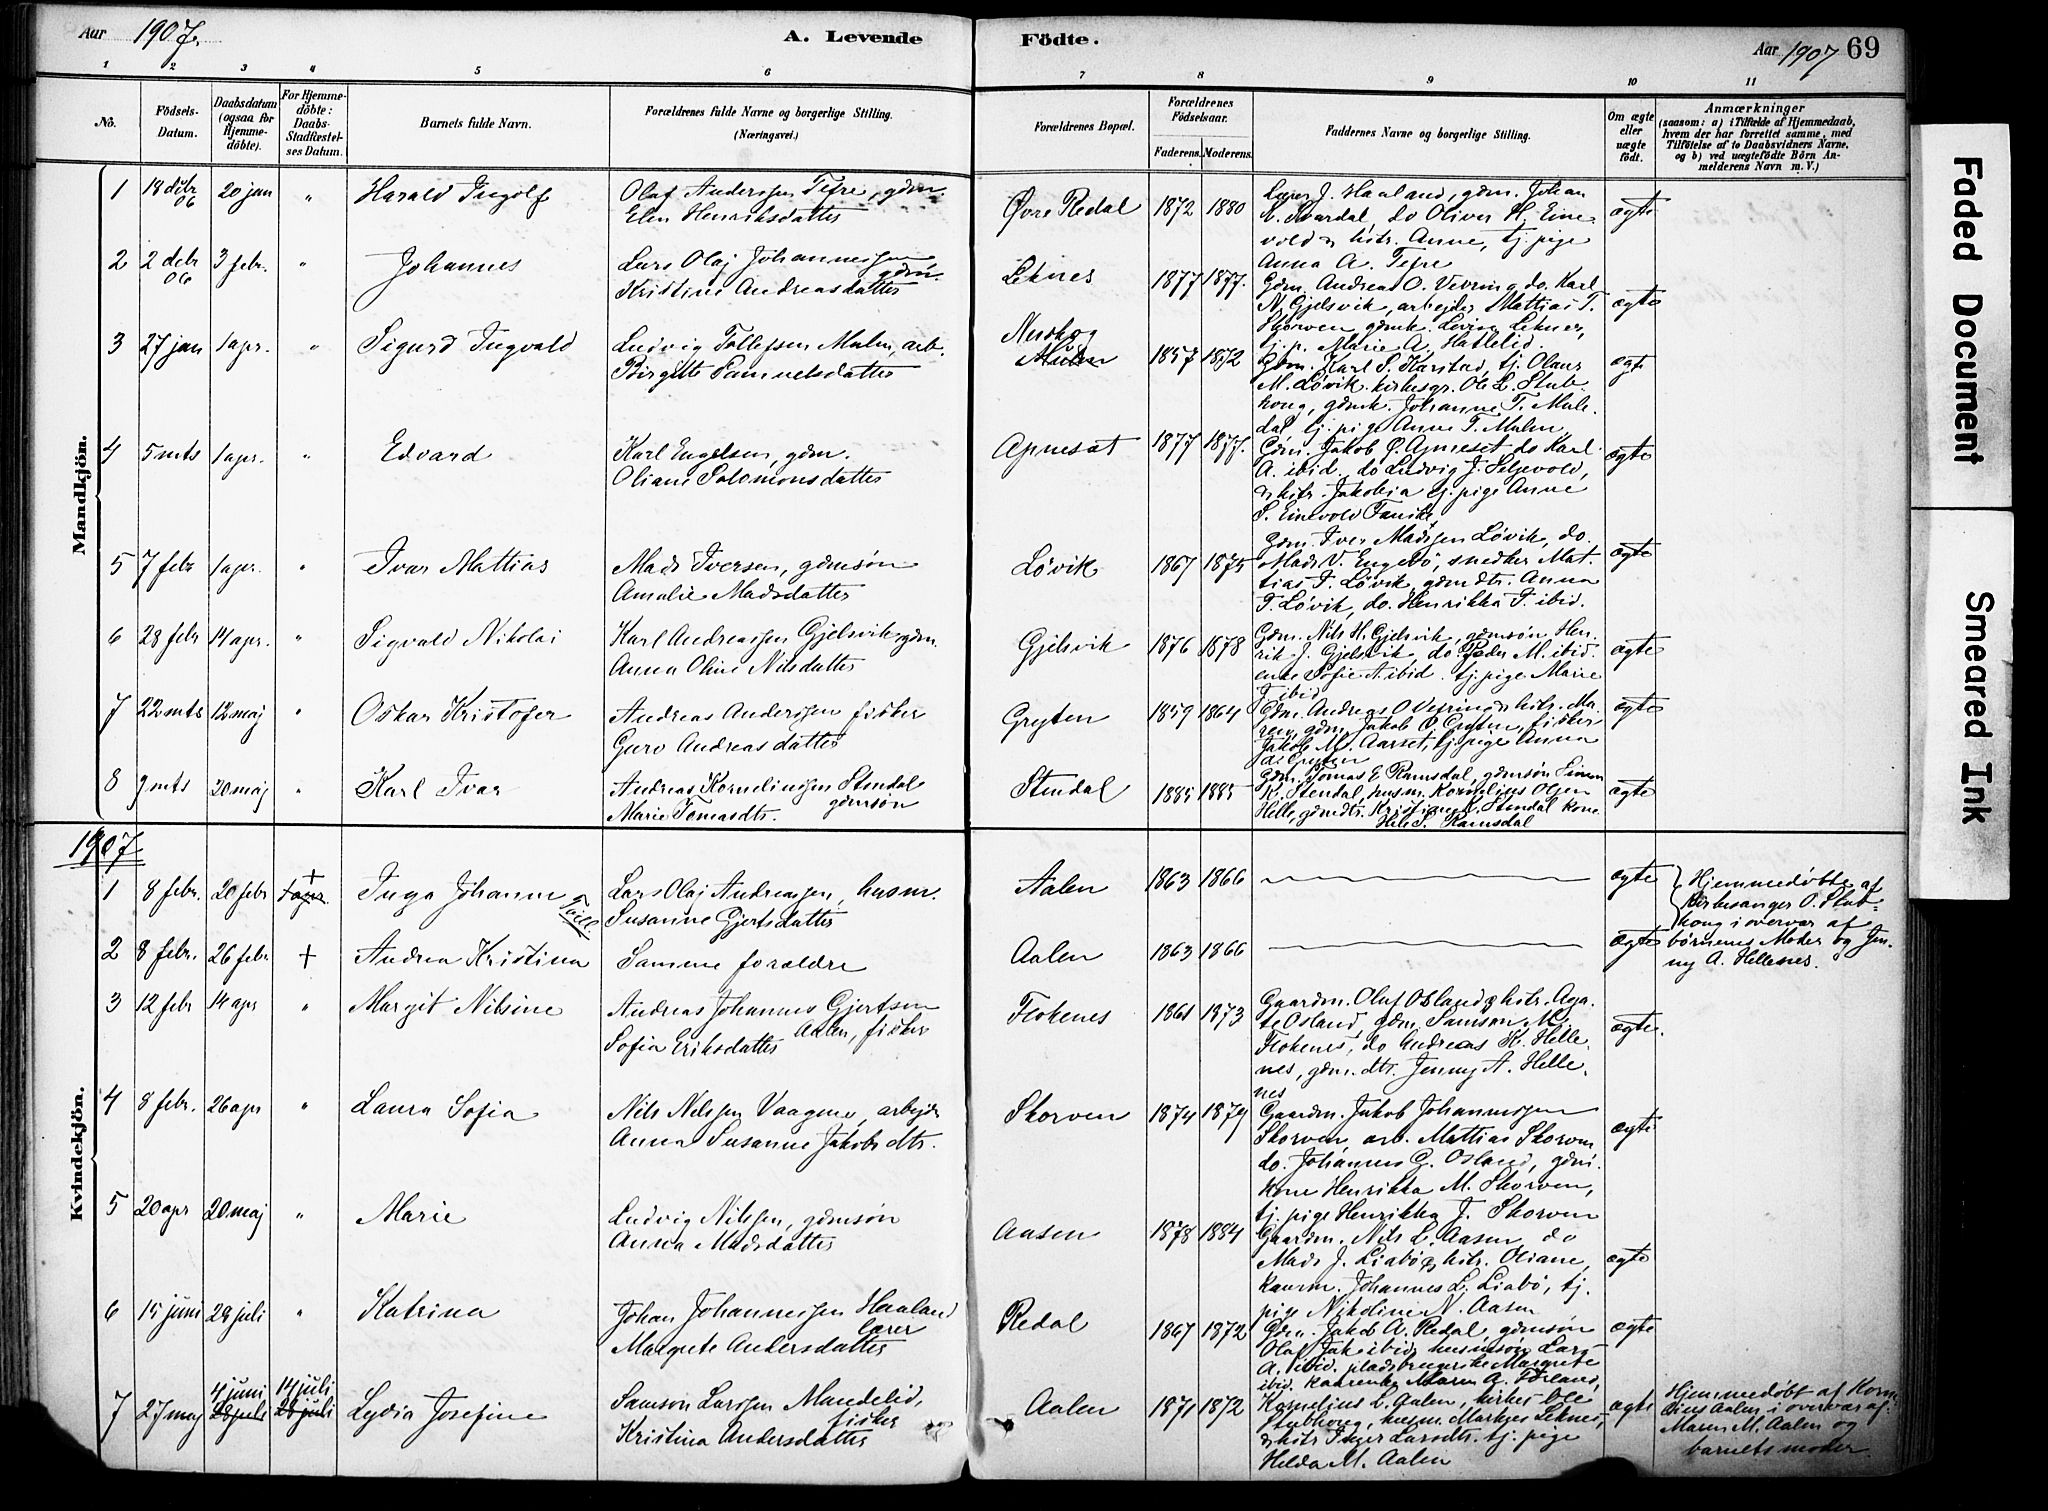 Aar 1907.
A. Levende
Födte.
Aar 1907
69
1 2 3 4 5 6
7 8 9 10 11
No.
Födsels-
Datum.
Daabsdatum
(ogsaa for
Hjemme-
döbte).
For Hjemme-
döbte:
Daabs-
Stadfæstel-
ses Datum.
Barnets fulde Navn.
Forældrenes fulde Navne og borgerlige Stilling.
(Næringsvei.)
Forældrenes Bopæl.
Forældrenes
Födselsaar.
Faderens. Moderens.
Faddernes Navne og borgerlige Stilling.
Om ægte
eller
uægte
födt.
Anmærkninger
(saasom: a) i Tilfælde af Hjemmedaab,
hvem der har forrettet samme, med
Tilföielse af to Daabsvidners Navne,
og b) ved uægtefödte Börn An-
melderens Navn m. V.)
Mandkjön.
1 18 debr 06 20 jan " Harald Ingolf
Olaf Anderssen Tefre, gdm.
Elen Henriksdatter
Øvre Redal 1872 1880
J. Haaland, gdm. Johan
Svardal, do Oliver H. Eine-
vold & hstr. Anne, tj. pige
Anna A. Tefre
ægte
2 2 debr 06 3 febr. " Johannes
Lars Olaj Johannessen
gdm.
Kristine Andreasdatter
Leknes 1877 1877.
Gdm. Andreas O. Vevring do. Karl
N. Gjelsvik, arbejder Mattias T.
Skorven gdmk. Lovise Leknes,
tj. p. Marie A. Hatlelid.
ægte
3 27 jan 1 apr. " Sigurd Ingvald
Ludvig Tollefsen Malm, arb.
Birgitte Samuelsdatter
Malm 1857 1872
Gdm. Karl S. Karstad, tj. Olaus
M. Løvik. kirkesgr. Ole L. Stub-
houg, gdmk. Johanne T. Mule-
dal tj. pige Anne T. Malm
ægte
4 5 mts 1 apr. " Edvard
Karl Engelsen, gdm.
Oliane Salomonsdatter
Apneset 1877 1877.
Gdm. Jakob Apneset do Karl
A. ibid. do Ludvig J. Seljevold,
& hstr. Jakobia tj. pige Anne
S. Einevold
ægte
5 7 febr 1 apr. " Ivar Mattias
Mads Iversen, gdmsøn
Amalie Madsdatter
Løvik 1867 1875
Gdm. Iver Madssen Løvik, do.
Mads V. Engebø, snedker Mat-
tias I. Løvik, gdmdtr. Anna
I. Løvik, do. Henrikka I. ibid.
ægte
6 28 febr 14 apr. " Sigvald Nikolai
Karl Andreassen Gjelsvik, gdm.
Anna Oline Nilsdatter
Gjelsvik 1876 1878
Gdm. Nils H. Gjelsvik, gdmsøn Hen-
rik J. Gjelsvik, do. Peder M. ibid.
enke Sofie A. ibid. tj. pige Marie
J. ibid
ægte
7 22 mts 12 maj " Oskar Kristofer
Andreas Anderssen fisker
Guro Andreasdatter
Gryten 1859 1864
Gdm. Andreas O Vefring & hstr. Ma-
ren, gdm. Jakob O Gryten, fisker
Jakob M. Aarset, tj. pige Anna
Gryten
ægte
8 9 mts 20 maj " Karl Ivar
Andreas Korneliussen Stendal
gdmsøn
Marie Tomasdtr.
Stendal 1885 1885
Gdm. Tomas E Ramsdal, gdmsøn Simon
K. Stendal, husm. Kornelius Olsen
Helle, gdmdtr. Kristiane K. Stendal kone
S. Ramsdal
ægte
1907
Kvindekjön.
1 8 febr. 20 febr + Inga Johanne
Tvill.
Lars Olaj Andreassen, husm.
Susanne Gjertsdatter
Aalen 1863 1866
ægte
Hjemmedøbte af
Kirkesanger O. Stub-
houg i overvær af
børnenes Moder og Jen-
ny A. Hellenes.
2 8 febr. 26 febr + Andrea Kristina
Samme forældre
Aalen 1863 1866
ægte
3 12 febr 14 apr " Margit Nilsine
Andreas Johannes Gjertsen
Aalen, fisker
Sofia Eriksdatter
Flokenes 1861 1873
Gaardm. Olaf Osland & hstr. Aga-
te Osland, gdm. Samson M.
Flokenes, do Andreas K. Helle-
nes, gdm. dtr. Jenny A. Helle-
nes
ægte.
4 8 febr. 26 apr " Laura Sofia
Nils Nilssen Vaagene, arbejder
Anna Susanne Jakobsdtr.
Skorven 1874 1879
Gaardm. Jakob Johannessen
Skorven, arb. Mattias Skorven
do. Johannes G. Osland, gdm.
kone Henrikka M. Skorven,
tj. pige Henrikka J. Skorven
ægte
5 20 apr 20 maj " Marie
Ludvig Nilssen, gdmsøn
Anna Madsdatter
Aasen 1878 1884
Gaardm. Nils L. Aasen, do
Mads J. Liabø & hstr. Oliane,
kaarm. Johannes L. Liabø, tj.
pige Nikoline N. Aasen
ægte
6 15 juni 29 juli " Katrina
Johan Johannessen Haaland
lærer
Margrete Andersdatter
Redal 1867 1872
Gdm. Jakob A. Redal, gdmsøn
Olaf Jak ibid, husmsøn Lars
A. ibid. pladsbrugerske Margrete
ibid. kaarenke Maren A. Førland,
ægte
7 27 maj 4 juni 28 juli 14 juli 28 juli Lydia Josefine
Samson Larssen Mandelid,
fisker
Kristina Andersdatter
Aalen 1871 1872
Kornelius L. Aalen, kirkes. Ole
Stubhoug, husm. Markus Leknes,
& hstr Inger Larsdtr. tj. pige
Helda M. Aalen
ægte
Hjemmedøbt af Korne-
lius Aalen i overvær af
Maren M. Aalen og
barnets moder.
Faded Document
Smeared Ink